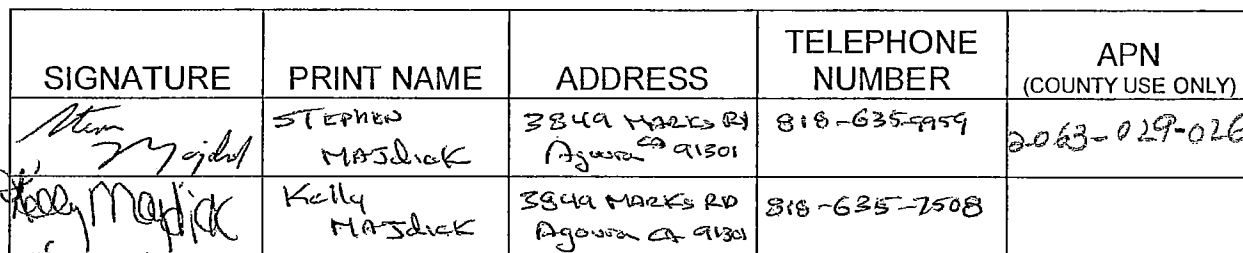 SIGNATURE PRINT NAME ADDRESS TELEPHONE NUMBER APN (COUNTY USE ONLY)
STEPHEN MAJdick 3849 MARKS Rd Agoura CA 91301 818-635-9959 2063-029-026
Kelly Majdick Kelly MAJdick 3849 MARKS RD Agoura CA 91301 818-635-7508